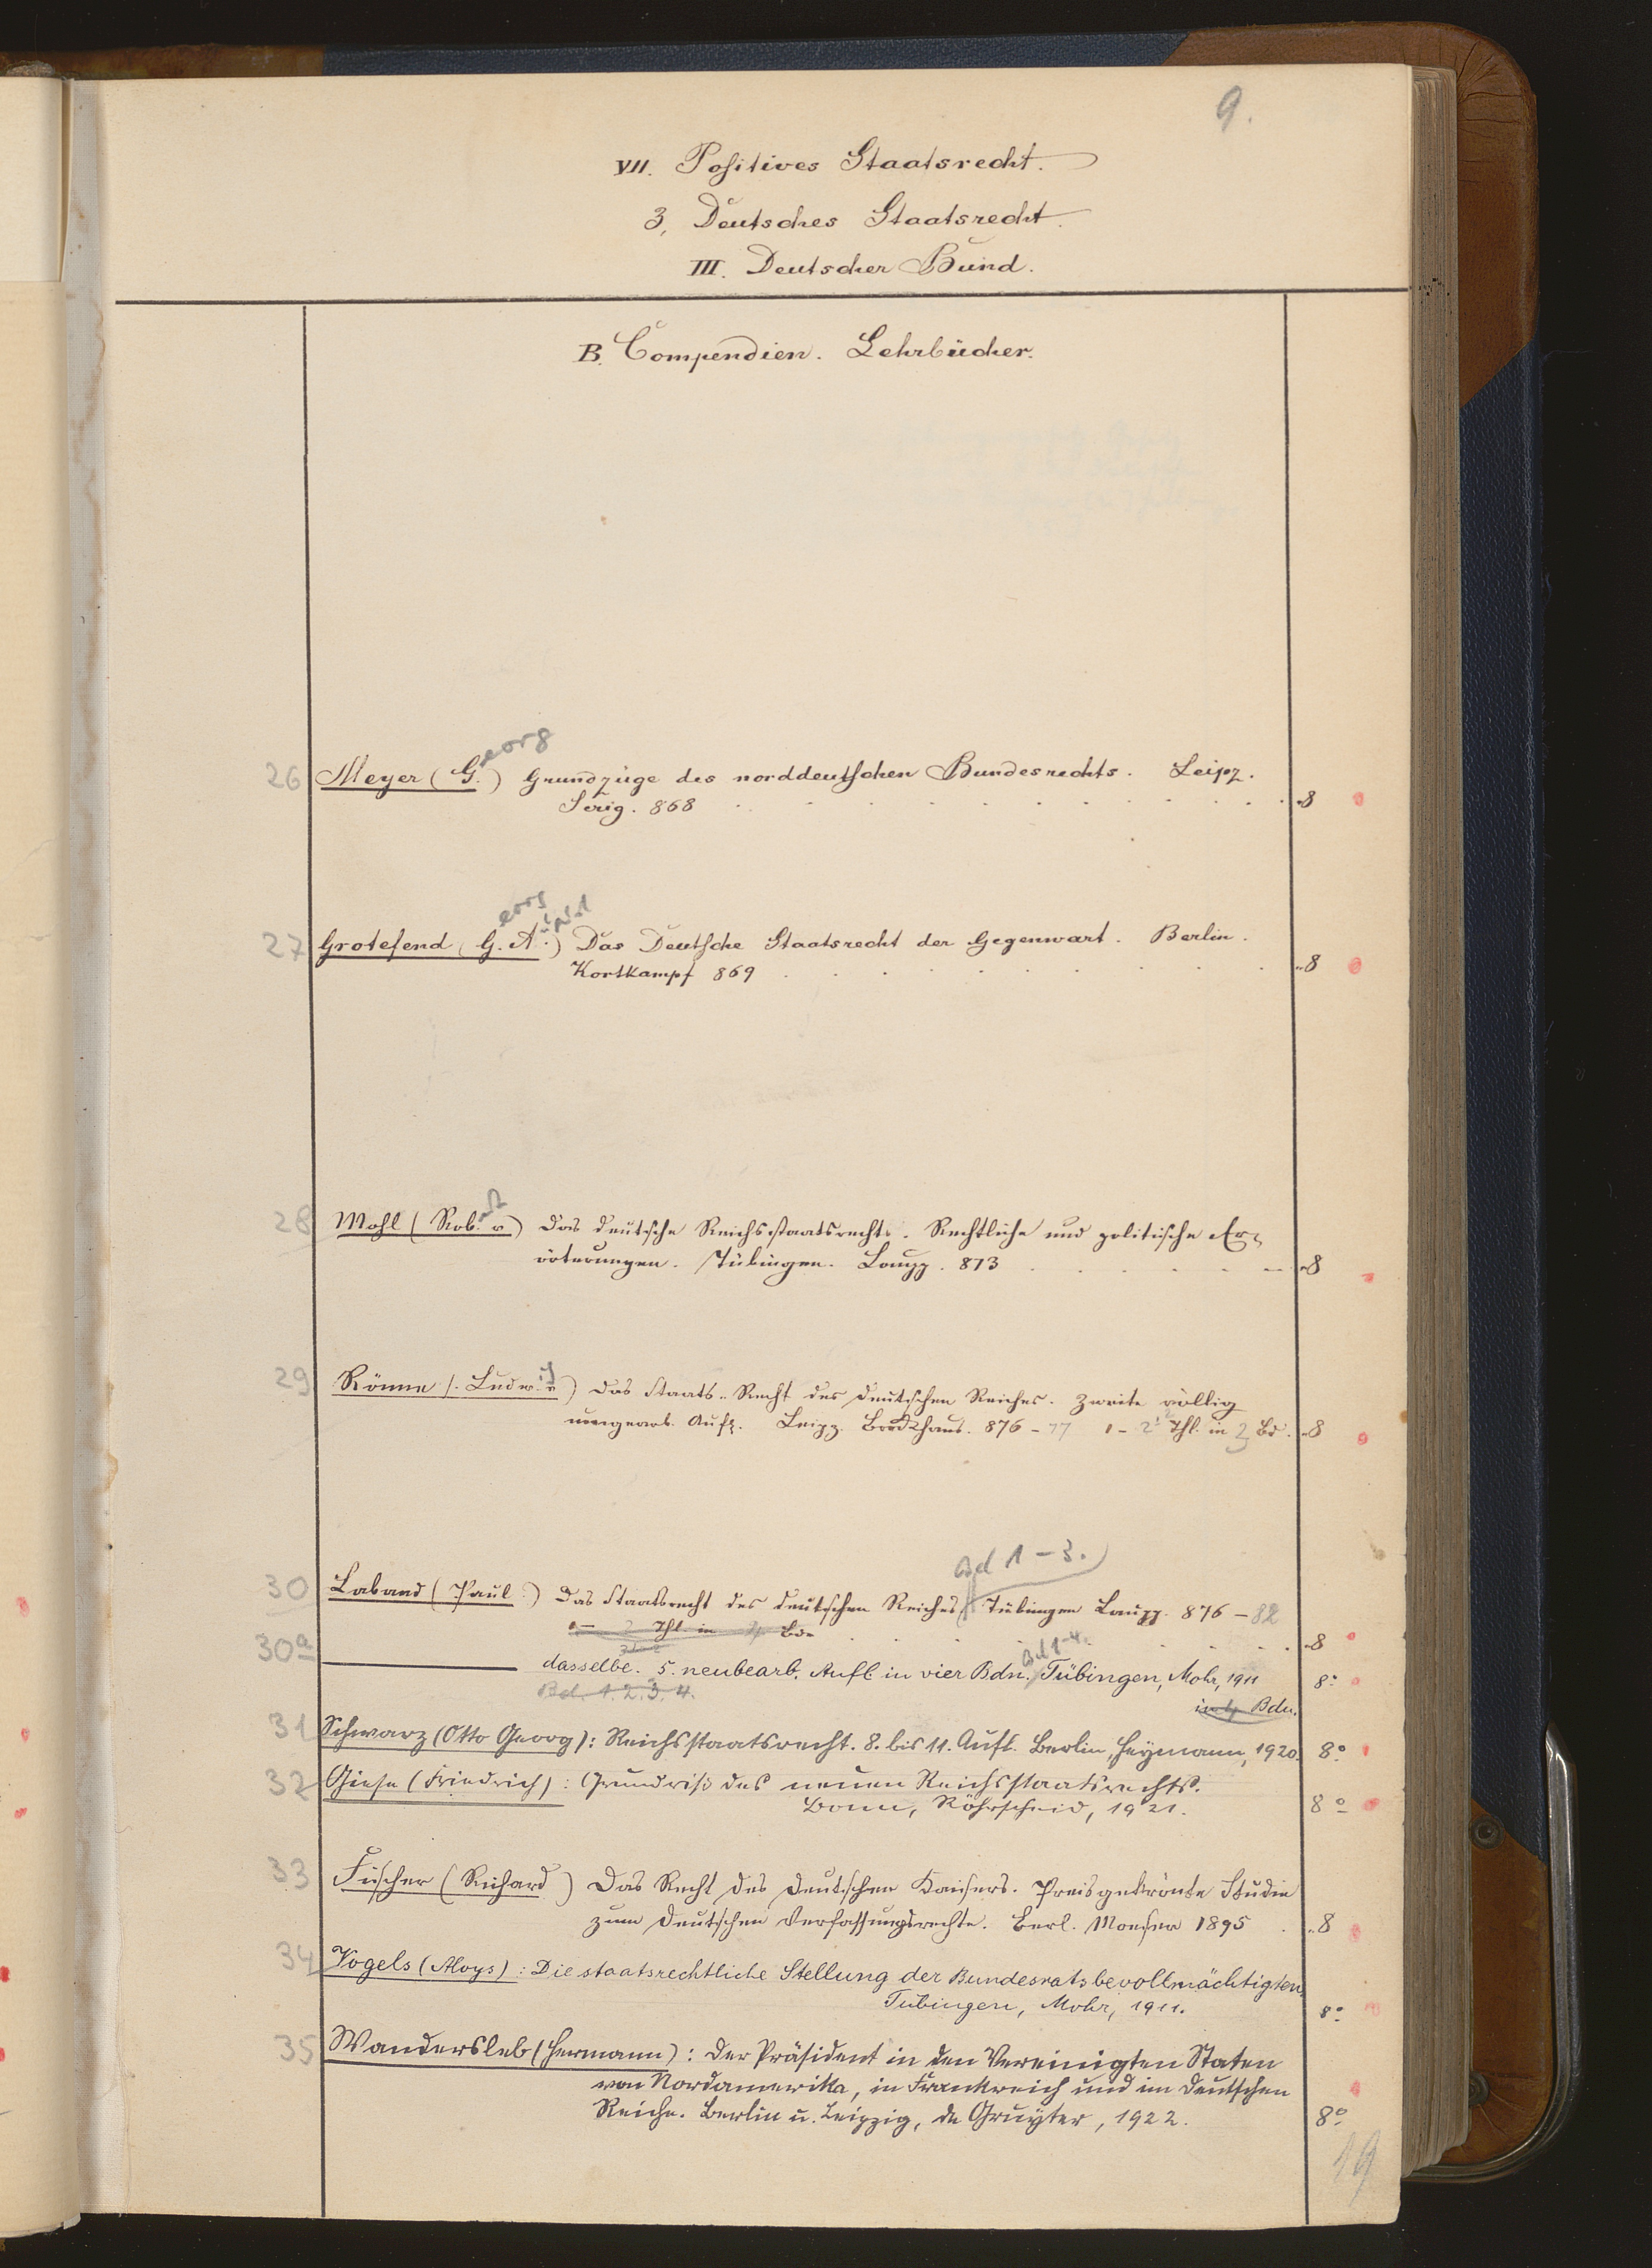 9.
VII. Positives Staatsrecht.
3, Deutsches Staatsrecht.
III. Deutscher Bund.
B. Compendien. Lehrbücher.
26 Meyer (G.eorg) Grundzüge des norddeutschen Bundesrechts. Leipz.
Serig. 868 . . . . . . . . . . „8
27 Grotefend (G.eorg A.) Das Deutsche Staatsrecht der Gegenwart. Berlin.
Kortkampf 869 . . . . . . . . . „8
28 Mohl (Rob.ert v) Das deutsche Reichsstaatsrecht. Rechtliche und politische Er-
örterungen. Tübingen. Laupp. 873 . . . . . . „8
29 Rönne (. Ludw.ig v) Das Staats-Recht des deutschen Reiches. Zweite völlig
umgearb. Aufl. Leipz. Brockhaus. 876 - 77 1 - 2 Thl. in 3 Bd. „8
Bd 1 - 3.
30 Laband (Paul.) Das Staatsrecht des deutschen Reiches Tübingen Laupp. 876 - 82
Thl. in Bde . . . . . . „8
30a dasselbe. 5. neubearb. Aufl. in vier Bdn. Bd 1-4. Tübingen, Mohr, 1911 8°
Bd. 1. 2. 3. 4.
in 4 Bdn.
31 Schwarz (Otto Georg): Reichsstaatsrecht. 8. bis 11. Aufl. Berlin, Heymann, 1920. 8°
32 Giese (Friedrich): Grundriß des neuen Reichsstaatsrechts.
Bonn, Röhrscheid, 1921. 8°
33 Fischer (Richard) Das Recht des deutschen Kaisers. Preisgekrönte Studie
zum deutschen Verfassungsrechte. Berl. Moeser 1895 . „8
34 Vogels (Aloys): Die staatsrechtliche Stellung der Bundesratsbevollmächtigten,
Tübingen, Mohr, 1911. 8°
35 Wandersleb (Hermann): Der Präsident in den Vereinigten Staten
von Nordamerika, in Frankreich und im Deutschen
Reiche. Berlin u. Leipzig, de Gruyter, 1922. 8°
19